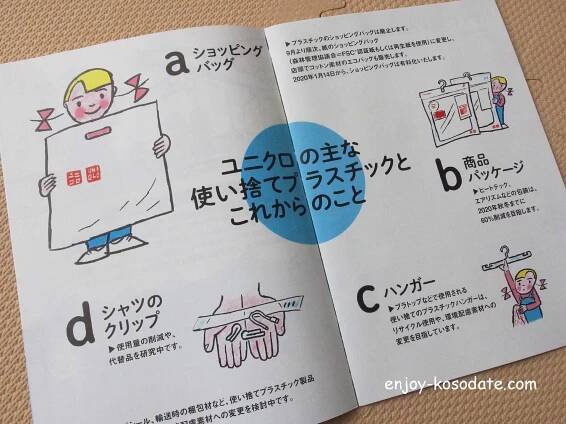 a ショッピング
バッグ
▶プラスチックのショッピングバッグは廃止します。
9月より順次、紙のショッピングバッグ
(森林管理協議会=FSC®認証紙もしくは再生紙を使用)に変更し、
店頭でコットン素材のエコバッグも販売します。
2020年1月14日から、ショッピングバッグは有料化いたします。
ユニ
クロ
UNI
QLO
ユニクロの主な
使い捨てプラスチックと
これからのこと
b 商品
パッケージ
▶ヒートテック、
エアリズムなどの包装は、
2020年秋冬までに
60%削減を目指します。
c ハンガー
▶ブラトップなどで使用される
使い捨てのプラスチックハンガーは、
リサイクル使用や、環境配慮素材への
変更を目指しています。
d シャツの
クリップ
▶使用量の削減や、
代替品を研究中です。
シール、輸送時の梱包材など、使い捨てプラスチック製品
配慮素材への変更を検討中です。
enjoy-kosodate.com